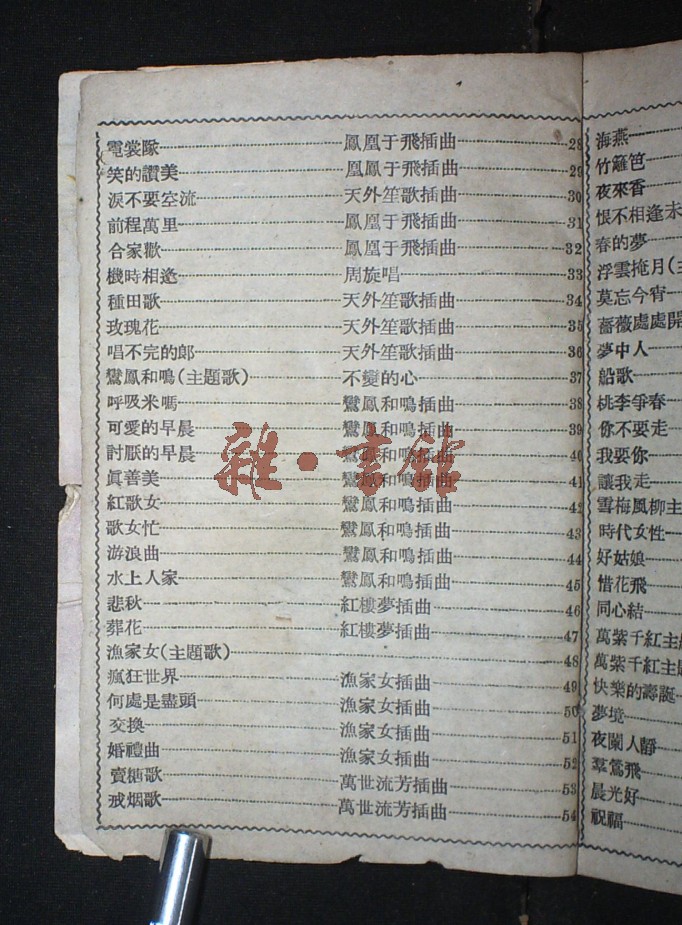 霓裳隊 鳳凰于飛插曲 28
笑的讚美 凰鳳于飛插曲 29
淚不要空流 天外笙歌插曲 30
前程萬里 鳳凰于飛插曲 31
合家歡 鳳凰于飛插曲 32
機時相逢 周旋唱 33
種田歌 天外笙歌插曲 34
玫瑰花 天外笙歌插曲 35
唱不完的郎 天外笙歌插曲 36
鸞鳳和鳴(主題歌) 不變的心 37
呼吸米嗎 鸞鳳和鳴插曲 38
可愛的早晨 鸞鳳和鳴插曲 39
討厭的早晨 鸞鳳和鳴插曲 40
眞善美 鸞鳳和鳴插曲 41
紅歌女 鸞鳳和鳴插曲 42
歌女忙 鸞鳳和鳴插曲 43
游浪曲 鸞鳳和鳴插曲 44
水上人家 鸞鳳和鳴插曲 45
悲秋 紅樓夢插曲 46
葬花 紅樓夢插曲 47
漁家女(主題歌) 48
瘋狂世界 漁家女插曲 49
何處是盡頭 漁家女插曲 50
交換 漁家女插曲 51
婚禮曲 漁家女插曲 52
賣糖歌 萬世流芳插曲 53
戒烟歌 萬世流芳插曲 54
雜·書館
海燕
竹籬笆
夜來香
恨不相逢未
春的夢
浮雲掩月(主
莫忘今宵
薔薇處處開
夢中人
船歌
桃李爭春
你不要走
我要你
讓我走
雲梅風柳主
時代女性
好姑娘
惜花飛
同心結
萬紫千紅主題
萬紫千紅主題
快樂的壽誕
夢境
夜闌人靜
羣鶯飛
晨光好
祝福